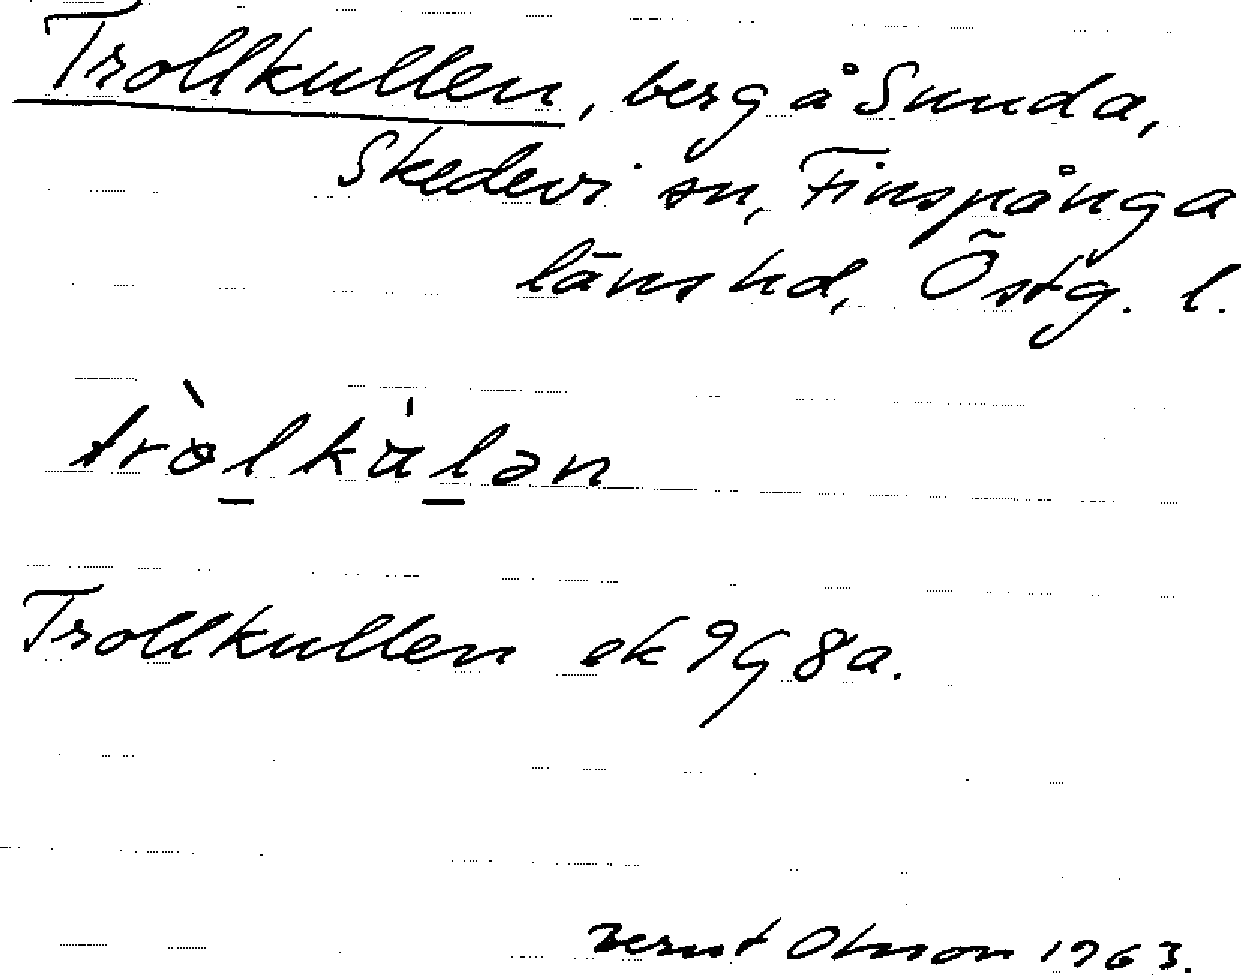 Trollkullen, berg å Sunda,
Skedevi sn, Finspånga
länshd, Östg. l.
tròlku̍lən
Trollkullen ek 9G 8a.
Bernt Olsson 1963.